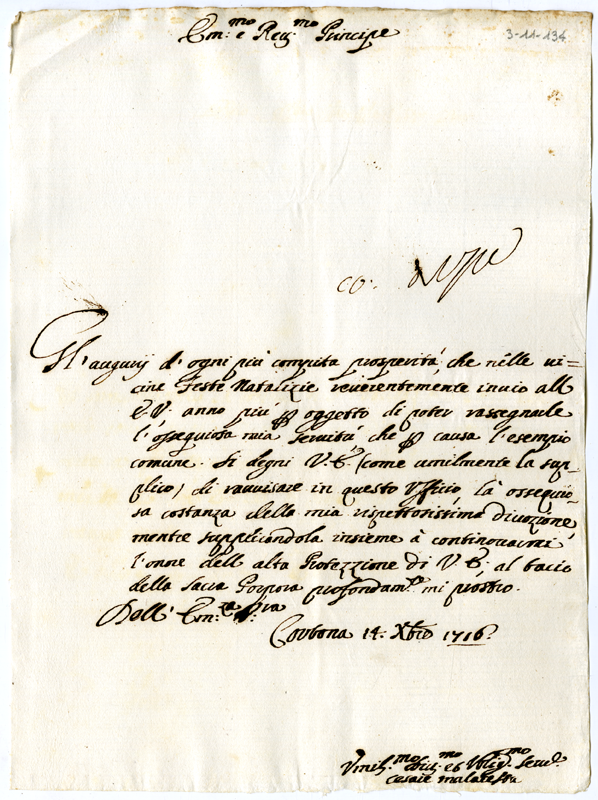 Em:mo e Reu:mo Principe
3-11-134
co:
Gl'augurij d'ogni più compita prosperità, che nelle ui=
cine Feste Natalizie reuerentemente inuio all
E.V. anno più oggetto di poter rassegnarle
l'osseguiosa mia seruitù che causa l'esempio
comune. Si degni V.E. (come umilmente la sup=
plico) di rauuisare in questo Vfficio, la osseguio=
sa costanza della mia rispettosissima diuozione,
mentre supplicandola insieme à continouarmi
l'onore dell'alta Protezzione di V.E. al bacio
della Sacra Porpora profondam.te mi prostro.
Dell' Em:za Sua
Cortona 14. Xbre 1716.
Vmil.mo et Seru.
Cesare Malatesta